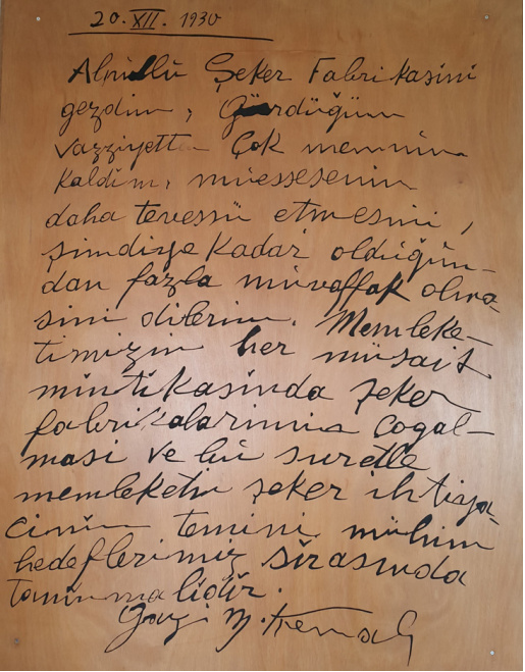 20.XII.1930
Alpullu Şeker Fabrikasini
gezdim, Gördüğüm
vazziyetten Çok memnun
kaldim, müessesenin
daha tevessü etmesini,
şimdiye kadar olduğun-
dan fazla müvaffak olma-
sini dilerim. Memleke-
timizin her müsait
mintikasinda şeker
fabrikalarinin çogal-
masi ve bu suretle
memleketin şeker ihtiya-
cinin temini mühim
hedeflerimiz sirasinda
taninmalidir.
Gazi M. Kemal